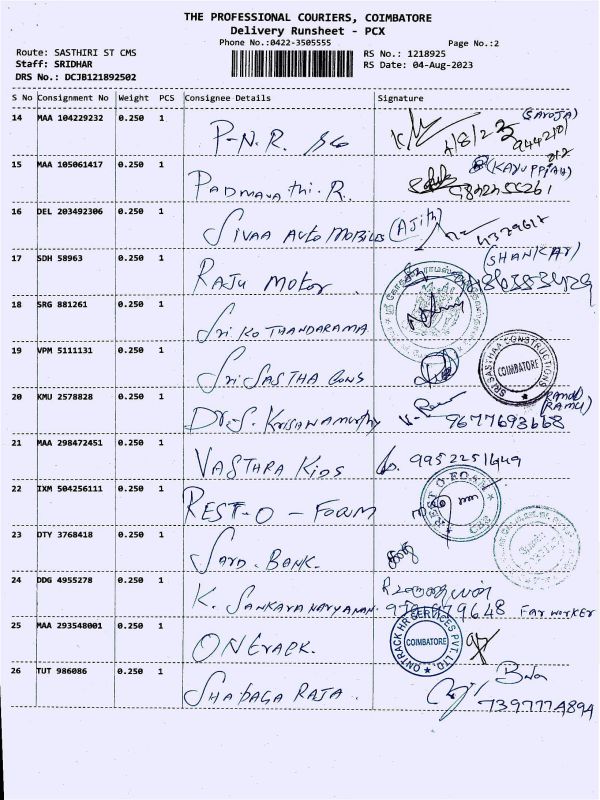 THE PROFESSIONAL COURIERS, COIMBATORE
Delivery Runsheet - PCX
Phone No.:0422-3505555 Page No.:2
Route: SASTHIRI ST CMS RS No.: 1218925
Staff: SRIDHAR RS Date: 04-Aug-2023
DRS No.: DCJB121892502
S No Consignment No Weight PCS Consignee Details Signature
14 MAA 104229232 0.250 1 P-N.R. (SAROJA)
15 MAA 105061417 0.250 1 Padmavathi.R. (KARUPPIAH)
16 DEL 203492306 0.250 1 SIVAA AUTO MOBILES (Ajith)
17 SDH 58963 0.250 1 RAJU MOTOR (SHANKAR)
18 SRG 881261 0.250 1 Sri KOTHANDARAMA
19 VPM 5111131 0.250 1 Sri SASTHA Cons
SRI SASTHAA CONSTRUCTIONS
COIMBATORE
20 KMU 2578828 0.250 1 DR.S. KRISHNAMURTHY (RAMU) 9677693668
21 MAA 298472451 0.250 1 VASTHRA KIDS 9952251449
22 IXM 504256111 0.250 1 REST-O-FOAM
REST O FOAM
CBE
23 DTY 3768418 0.250 1 SARD. BANK.
24 DDG 4955278 0.250 1 K. SANKARANARYANAN. FAR WORKER
25 MAA 293548001 0.250 1 ONTRACK.
ONTRACK HR SERVICES PVT. LTD.
COIMBATORE
26 TUT 986086 0.250 1 SHABAGA RAJA. Bala
7397774894